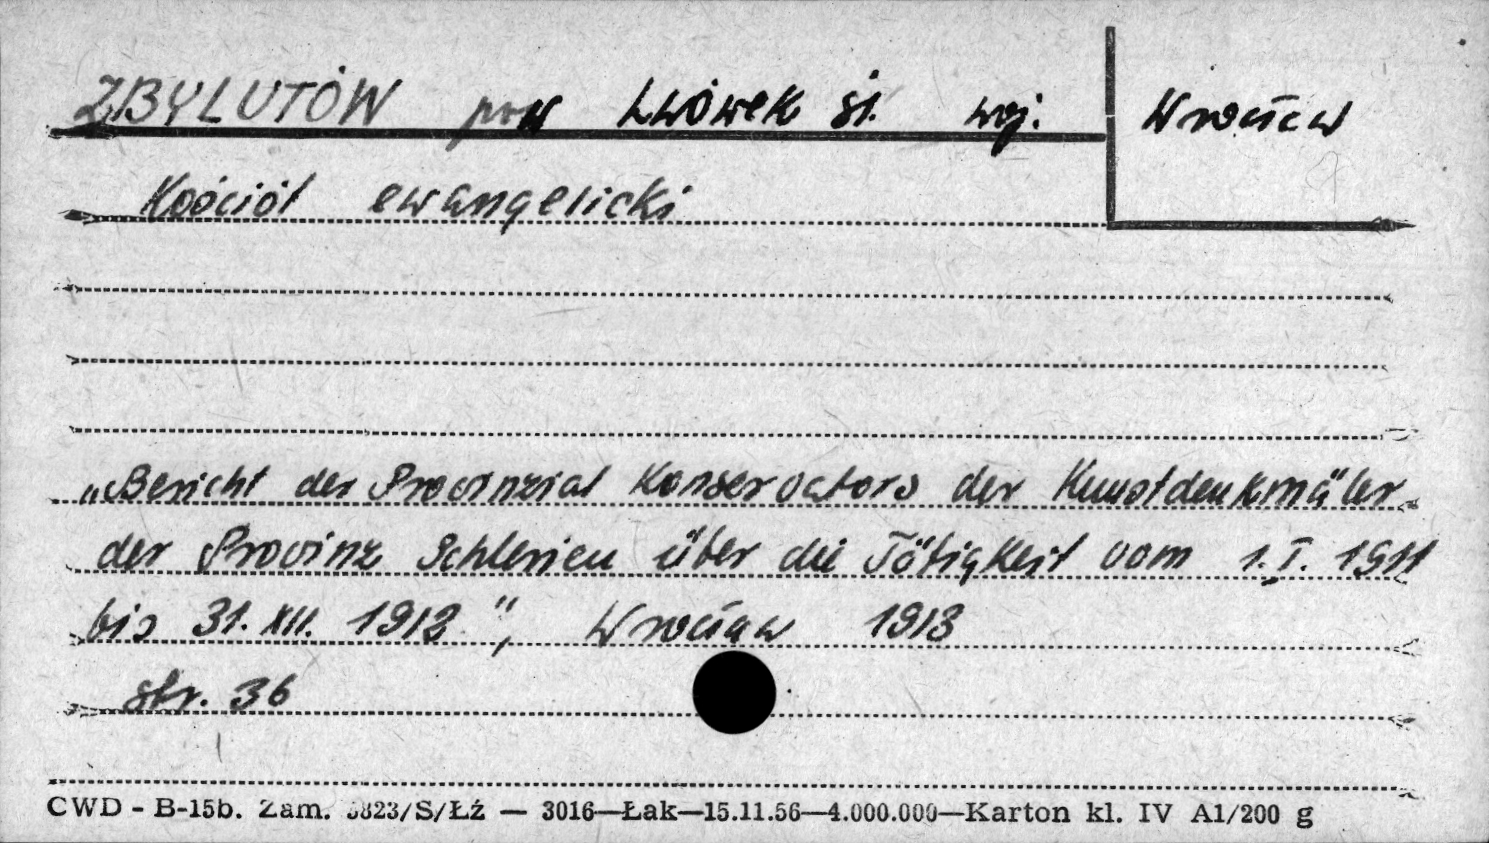 ZBYLUTÓW pow Lwówek śl. woj. Wrocław
Kościół ewangelicki
„Bericht der Provinzial Konservators der Kunstdenkmäler
der Provinz Schlesien über die Tätigkeit vom 1.I. 1911
bis 31. XII. 1912", Wrocław 1913
str. 36
CWD - B-15b. Zam. 3823/S/Łź — 3016—Łak—15.11.56—4.000.000—Karton kl. IV A1/200 g